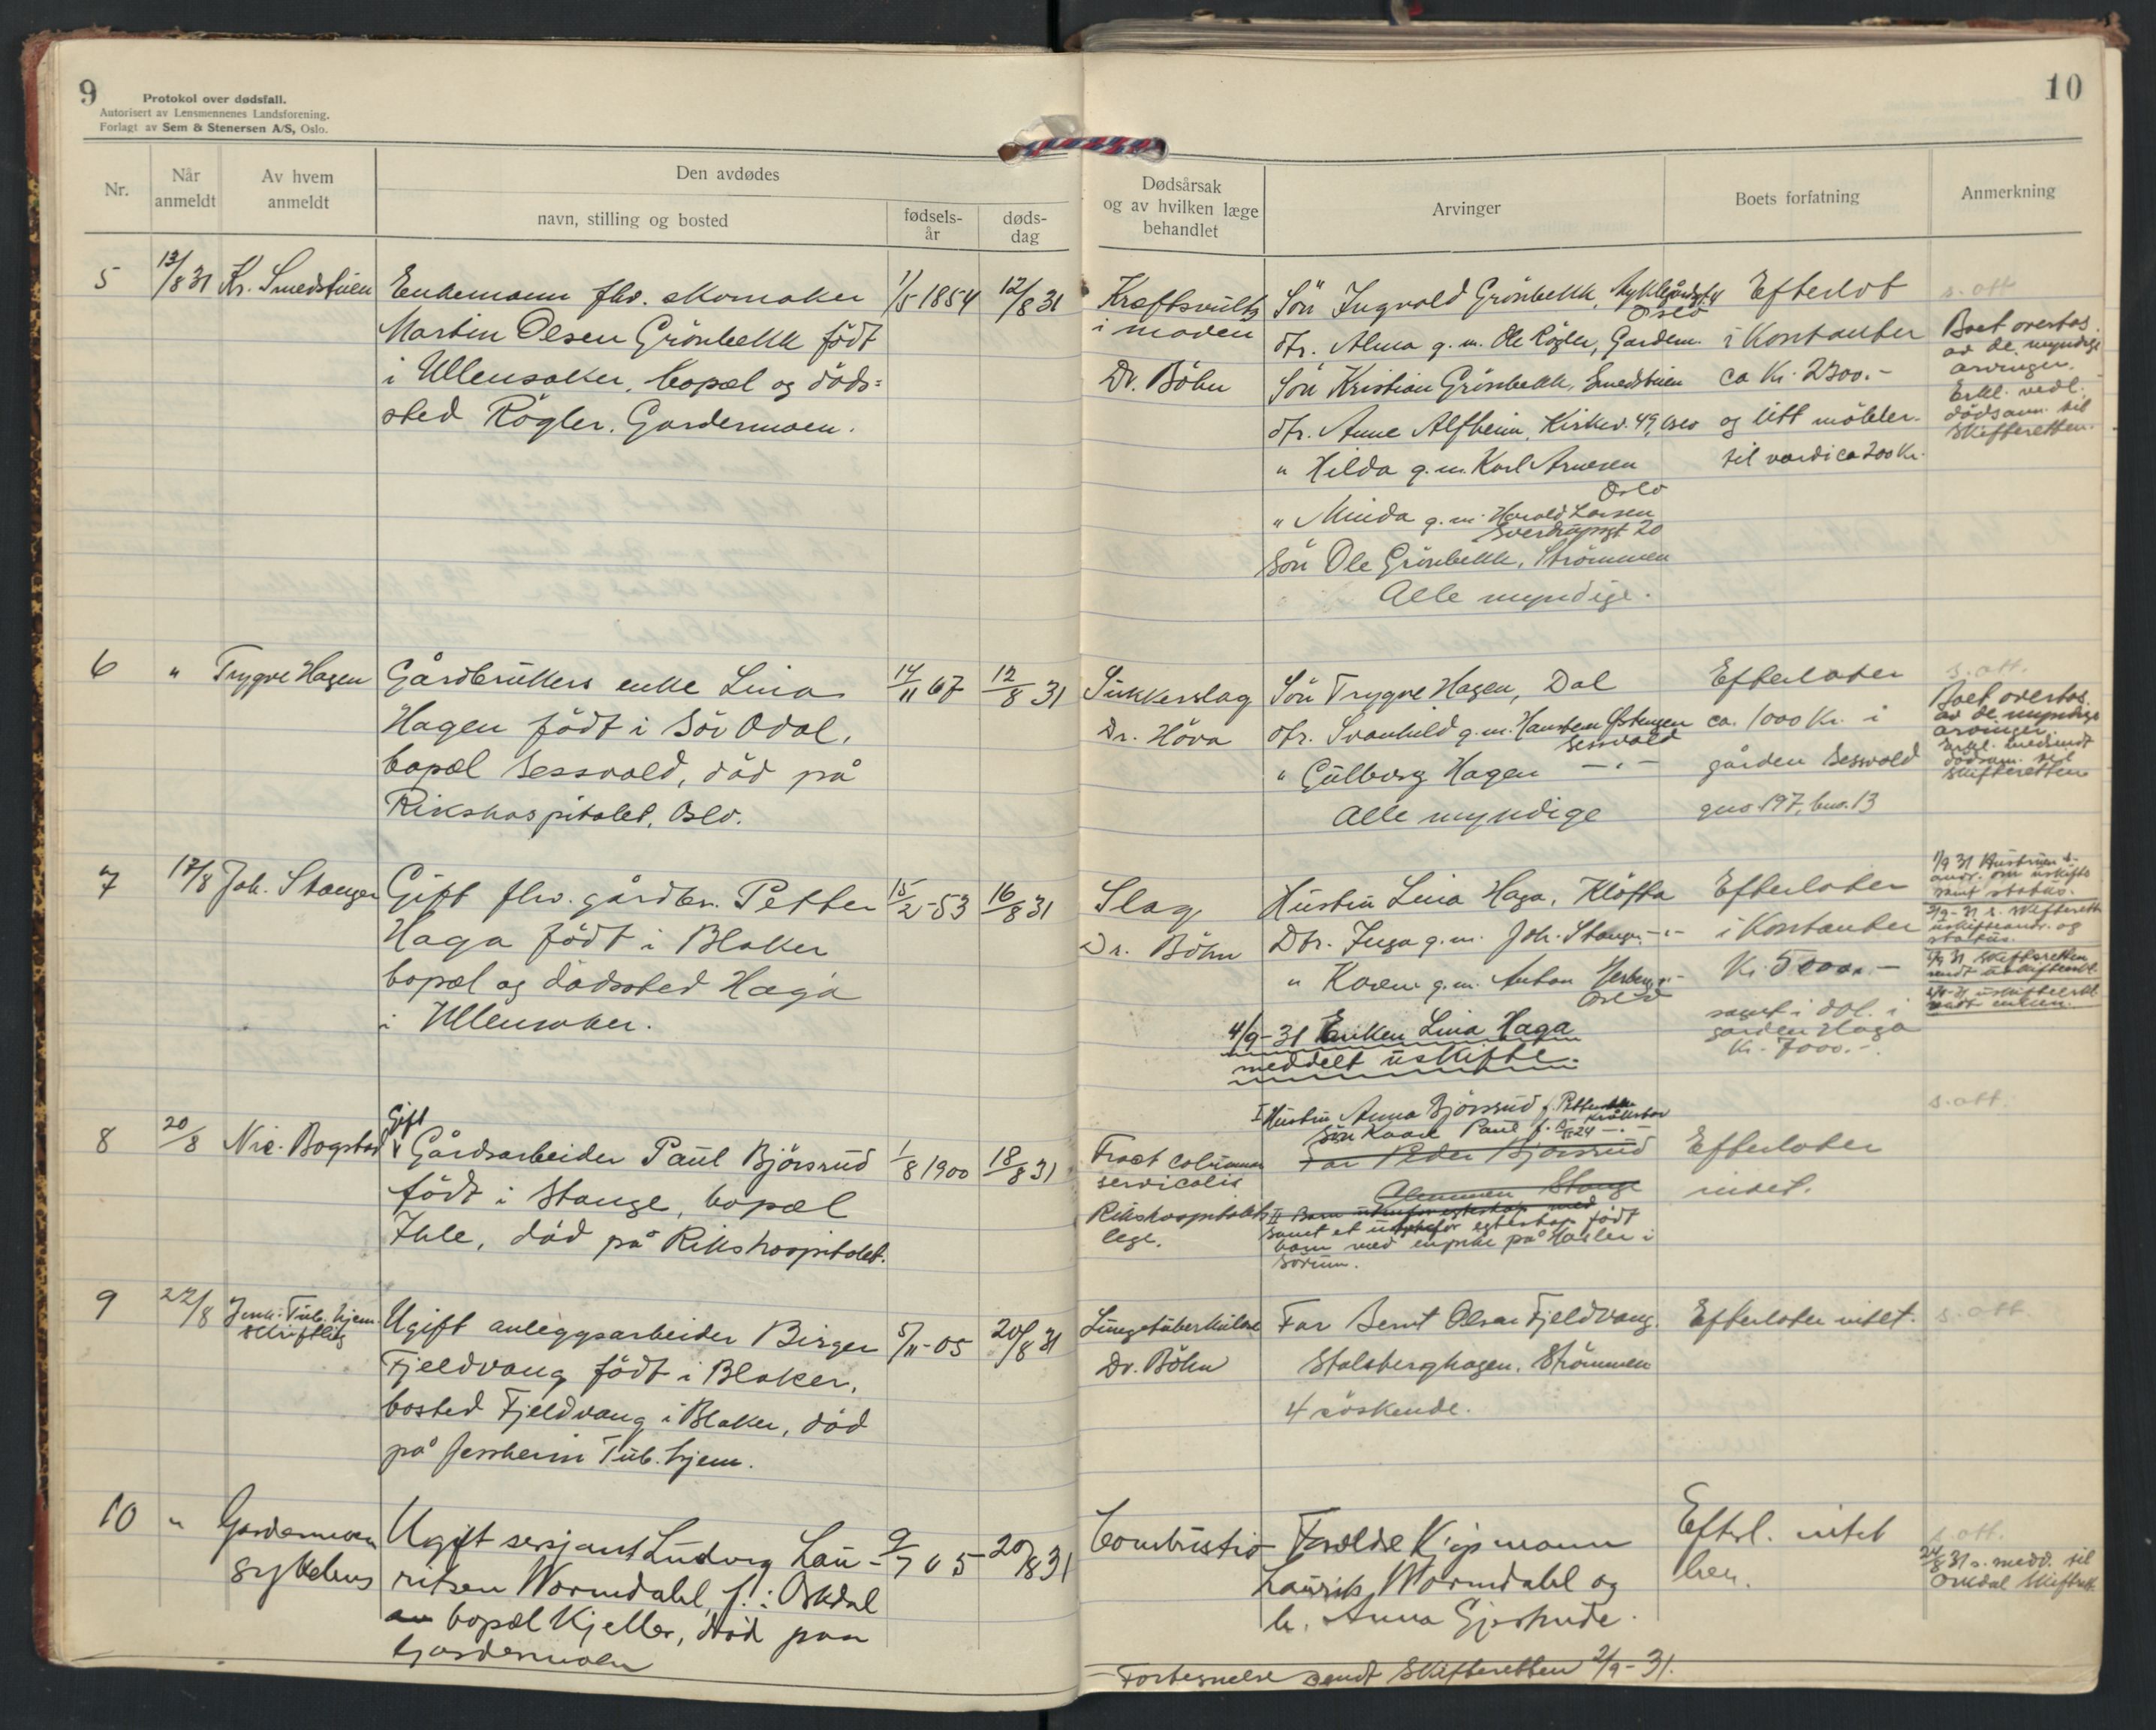 9
Protokol over dødsfall.
Autorisert av Lensmennenes Landsforening.
Forlagt av Sem & Stenersen A/S, Oslo.
10
Nr.
Når anmeldt
Av hvem anmeldt
Den avdødes
navn, stilling og bosted
fødsels-år
døds-dag
Dødsårsak og av hvilken læge behandlet
Arvinger
Boets forfatning
Anmerkning
5
13/8 31
Kr. Smedstuen
Enkemann fhv. skomaker
Martin Olsen Grönbekk födt
i Ullensaker, bopæl og döds-
sted Rögler, Gardermoen.
1/5 1854
12/8 31
Kræftsvulst
i maven
Dr. Böhn
Sön Ingvald Grönbekk,
Oslo
dtr. Alma g.m. Ole Rögler, Garderm.
Sön Kristian Grönbekk, Smedstuen
dtr. Anne Alfheim, Kirkev. 49, Oslo
" Hilda g.m. Karl Arnesen
Oslo
" Minda g.m. Harald Larsen
Sverdrupsgt 20
Sön Ole Grönbekk, Strömmen
Alle myndige.
Efterlot
i Kontanter
ca Kr. 2300.-
og litt möbler
til værdi ca 200 Kr.
s. att
Boet overtas
av de myndige
arvinger.
Erkl. vedl.
dödsanm. til
Skifteretten.
6
"
Trygve Hagen
Gårdbrukers enke Lina
Hagen födt i Sör Odal,
bopæl Sessvold, död på
Rikshospitalet, Oslo.
14/11 67
12/8 31
Sukkerslag
Dr. Höva
Sön Trygve Hagen, Dal
dtr. Svanhild g.m. Østengen
Sessvold
" Gulborg Hagen -"-
Alle myndige
Efterlater
ca. 1000 Kr. i
gården Sessvold
gno. 197, bno. 13
s. att.
Boet overtas
av de myndige
arvinger
Erkl. medsendt
dödsanm. til
Skifteretten
7
17/8
Joh. Stanger
Gift fhv. gårdbr. Petter
Haga födt i Blaker
bopæl og dödssted Haga
i Ullensaker.
15/2-53
16/8 31
Slag
Dr. Böhn
Hustru Lina Haga, Klöfta
Dtr. Inga g.m. Joh. Stanger -"-
" Karen g.m. Anton
Oslo
4/9-31 Enken Lina Haga
meddelt uskifte.
Efterlater
i Kontanter
Kr. 5000.-
samt i dal. i
gården Haga
Kr. 7000.-
1/9 31 Hustruen s.
andr. om uskifte
samt status.
2/9-31 s. skifterett
uskifteandr. og
status.
31 Skifteretten
sendt uskiftebev.
sendt enken.
8
20/8
Nic. Bogstad
Gift
Gårdsarbeider Paul Björsrud
födt i Stange, bopæl
Ihle, död på Rikshospitalet.
1/8 1900
18/8 31
Fract columna
servicalis
Rikshospitalets
lege.
I Hustru Anna Björsrud f.
Sön Kaare Paul f.
Far Peder Björsrud
Stange
II Barn utenfor egteskap med
samt et utenfor egteskap födt
barn med en pike på Hasler i
Sörum.
Efterlater
intet.
s. att.
9
22/8
Jessh. Tub. hjem
skriftlig
Ugift anleggsarbeider Birger
Fjeldvang födt i Blaker,
bosted Fjeldvang i Blaker, död
på Jessheim Tub. hjem.
5/11-05
20/8 31
Lungetuberkulose
Dr. Böhn
Far Bernt Olsen Fjeldvang.
Stalsberghagen, Strömmen
4 söskende.
Efterlater intet.
s. att
10
"
Gardermoen
sykehus
Ugift sersjant Ludvig Lau-
ritsen Wormdahl, f.: Orkdal
bopæl Kjeller, död paa
Gardermoen
9/7 05
20/8 31
Combustio
Forældre Kjøpmann
Laurits Wormdahl og
h. Anna Gjertrude.
Efterl. intet
her.
s. att.
24/8 31 s. medd. til
Orkdal Skifterett.
- Fortegnelse sendt Skifteretten 2/9-31.